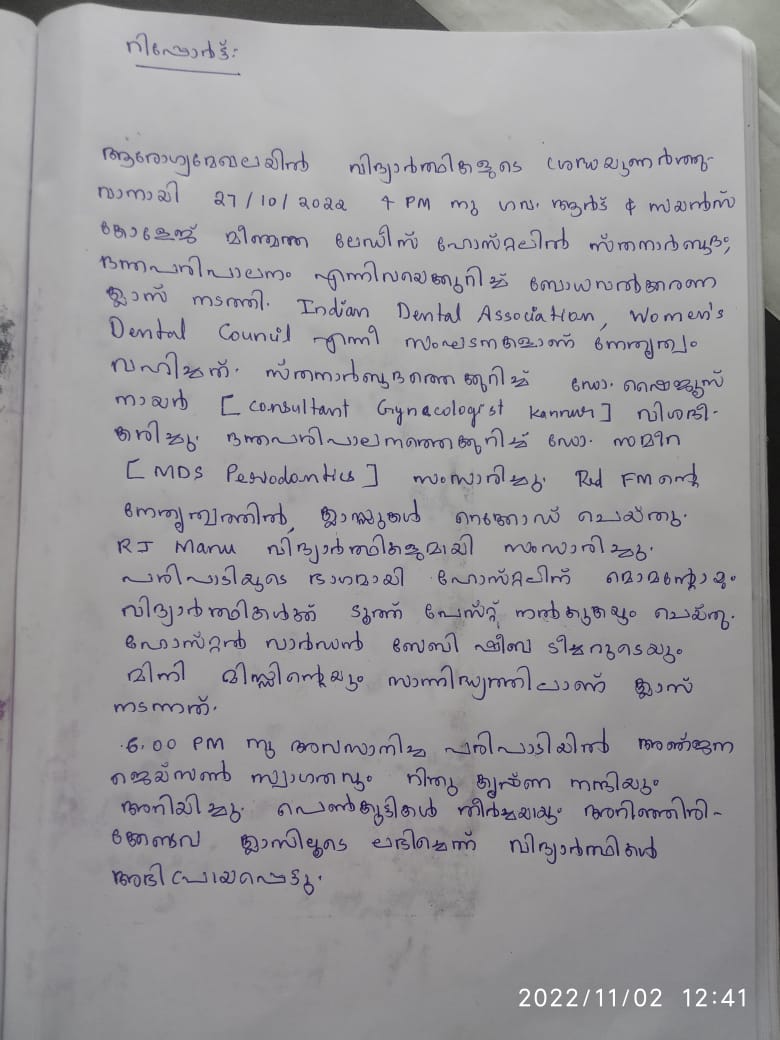 റിപ്പോർട്ട്:
ആരോഗ്യമേഖലയിൽ വിദ്യാർത്ഥികളുടെ ശ്രദ്ധയുണർത്തു-
വാനായി 27/10/2022 4 PM നു ഗവ. ആർട്ട് & സയൻസ്
കോളേജ് മീഞ്ചന്ത ലേഡീസ് ഹോസ്റ്റലിൽ സ്തനാർബുദം,
ദന്തപരിപാലനം എന്നിവയെക്കുറിച്ച് ബോധവൽക്കരണ
ക്ലാസ് നടത്തി. Indian Dental Association, Women's
Dental Council എന്നീ സംഘടനകളാണ് നേതൃത്വം
വഹിച്ചത്. സ്തനാർബുദത്തെക്കുറിച്ച് ഡോ. ഷൈജുസ്
നായർ [Consultant Gynacologist Kannur] വിശദീ-
കരിച്ചു. ദന്തപരിപാലനത്തെക്കുറിച്ച് ഡോ. സമീറ
[MDS Periodontics] സംസാരിച്ചു. Red FM ന്റെ
നേതൃത്വത്തിൽ, ക്ലാസ്സുകൾ റെക്കോഡ് ചെയ്തു.
RJ Manu വിദ്യാർത്ഥികളുമായി സംസാരിച്ചു.
പരിപാടിയുടെ ഭാഗമായി ഹോസ്റ്റലിന് മൊമന്റോയും
വിദ്യാർത്ഥികൾക്ക് ടൂത്ത് പേസ്റ്റ് നൽകുകയും ചെയ്തു.
ഹോസ്റ്റൽ വാർഡൻ ബേബി ഷീബ ടീച്ചറുടെയും
മിനി മിസ്സിന്റെയും സാന്നിദ്ധ്യത്തിലാണ് ക്ലാസ്
നടന്നത്.
6.00 PM നു അവസാനിച്ച പരിപാടിയിൽ അഞ്ജന
ജെയ്സൺ സ്വാഗതവും നിതു കൃഷ്ണ നന്ദിയും
അറിയിച്ചു. പെൺകുട്ടികൾ തീർച്ചയായും അറിഞ്ഞിരി-
ക്കേണ്ടവ ക്ലാസിലൂടെ ലഭിച്ചെന്ന് വിദ്യാർത്ഥികൾ
അഭിപ്രായപ്പെട്ടു.
2022/11/02 12:41